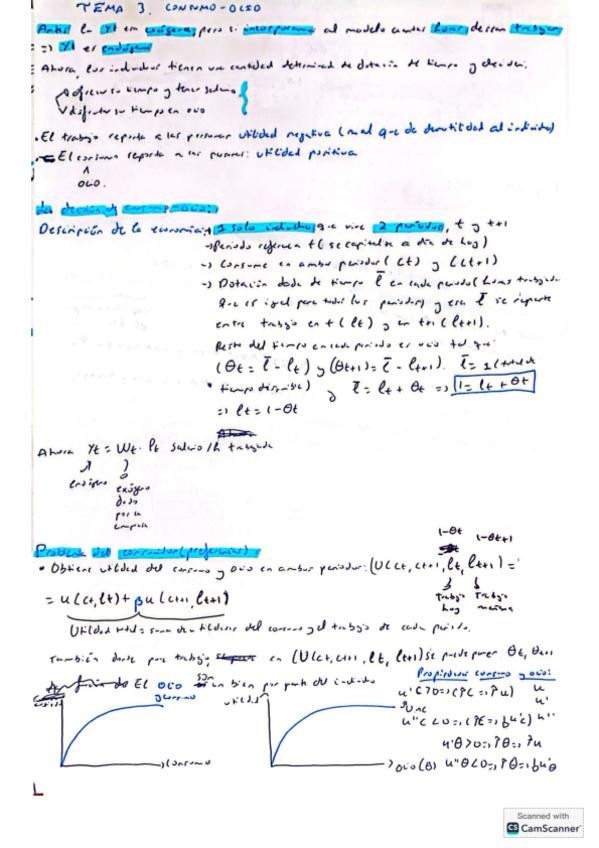 TEMA 3. CONSUMO-OCIO
Antes la Yt era exógena, pero si incorporamos al modelo cuantas horas desean trabajar
=> Yt es endógena
Ahora, los individuos tienen una cantidad determinada de dotación de tiempo y deciden:
ofrecer su tiempo y tener salario
disfrutar su tiempo en ocio
• El trabajo reporta a las personas utilidad negativa (mal que da desutilidad al individuo)
El consumo reporta a las personas: utilidad positiva
^
ocio.
La decisión de consumo-ocio:
Descripción de la economía: 1 solo individuo que vive 2 periodos, t y t+1
-> Periodo referencia t (se capitaliza a día de hoy)
-> Consume en ambos periodos (Ct) y (Ct+1)
-> Dotación dada de tiempo l̄ en cada periodo (horas trabajadas
que es igual para todos los periodos) y esa l̄ se reparte
entre trabajo en t (lt) y en t+1 (lt+1).
Resto del tiempo en cada periodo es ocio tal que:
(θt = l̄ - lt) y (θt+1 = l̄ - lt+1). l̄ = 1 (total de
tiempo disponible) y l̄ = lt + θt => 1 = lt + θt
=> lt = 1-θt
Ahora Yt = Wt · lt salario/h trabajada
endógeno
exógeno
dado
por la
empresa
Problema del consumidor (preferencias):
1-θt 1-θt+1
• Obtiene utilidad del consumo y ocio en ambos periodos: (U(Ct, Ct+1, lt, lt+1) =
trabajo hoy
trabajo mañana
= u(Ct, lt) + βu(Ct+1, lt+1)
Utilidad total = suma de utilidades del consumo y el trabajo de cada periodo.
También donde pone trabajo en (U(Ct, Ct+1, lt, lt+1) se puede poner θt, θt+1
El ocio y consumo son un bien por parte del individuo
Propiedades consumo y ocio:
u'c>0 => (↑c => ↑u)
u''c<0 => (↑c => ↓u'c)
u'θ>0 => ↑θ => ↑u
u''θ<0 => ↑θ => ↓u'θ
u
u'
u''
utilidad
consumo
utilidad
Ocio (θ)
Scanned with
CS CamScanner